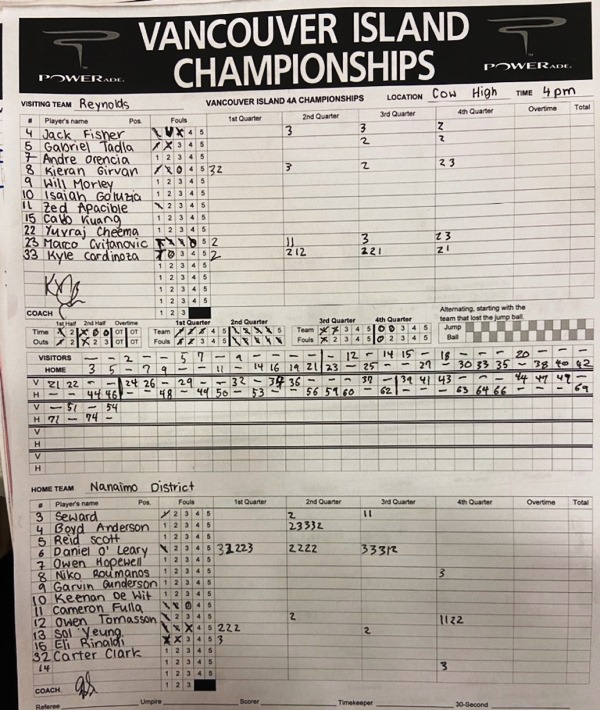 VANCOUVER ISLAND
CHAMPIONSHIPS
POWERADE POWERADE
VISITING TEAM Reynolds VANCOUVER ISLAND 4A CHAMPIONSHIPS LOCATION Cow High TIME 4pm
# Player's name Pos. Fouls 1st Quarter 2nd Quarter 3rd Quarter 4th Quarter Overtime Total
4 Jack Fisher 4 5 3 3 2
5 Gabriel Tadla 3 4 5 2 2
7 Andre Orencia 1 2 3 4 5
8 Kieran Girvan 4 5 32 3 2 23
9 Will Morley 1 2 3 4 5
10 Isaiah 1 2 3 4 5
11 Zed Apacible 2 3 4 5
15 Kuang 1 2 3 4 5
22 Yuvraj Cheema 1 2 3 4 5
23 Marco Cvitanovic 5 2 11 3 23
33 Kyle Cardinoza 3 4 5 2 212 221 21
1 2 3 4 5
1 2 3 4 5
1 2 3 4 5
COACH 1 2 3
1st Half 2nd Half Overtime 1st Quarter 2nd Quarter 3rd Quarter 4th Quarter Alternating, starting with the team that lost the jump ball.
Time OT OT Team Team Jump
Outs OT OT Fouls Fouls Ball
VISITORS - - 2 - - 5 7 - 9 - - - - - - 12 - 14 15 - - 18 - - - 20 - - -
HOME 3 5 - 7 9 - - 11 - 14 16 19 21 23 - 25 - - - 27 - 30 33 35 - 38 40 42
V 21 22 - - 24 26 - 29 - - 32 - 36 - - - 37 - 39 41 43 - - - 44 47 49 -
H - - 44 46 - - 48 - 49 50 - 53 - - 56 59 60 - 62 - - - 63 64 66 - - - 69
V - 51 - 54
H 71 - 74 -
V
H
V
H
HOME TEAM Nanaimo District
# Player's name Pos. Fouls 1st Quarter 2nd Quarter 3rd Quarter 4th Quarter Overtime Total
3 Seward 2 3 4 5 2 11
4 Boyd Anderson 1 2 3 4 5 23332
5 Reid Scott 1 2 3 4 5
6 Daniel O'Leary 2 3 4 5 2222
7 Owen Hopewell 1 2 3 4 5
8 Niko Roumanos 1 2 3 4 5 3
9 Garvin Gunderson 1 2 3 4 5
10 Keenan De Wit 1 2 3 4 5
11 Cameron Fulla 4 5
12 Owen Tomasson 2 1122
13 Sol Yeung 4 5 222 2
16 Eli Rinaldi 3 4 5 3
32 Carter Clark 1 2 3 4 5
14 1 2 3 4 5 3
COACH 1 2 3
Referee Umpire Scorer Timekeeper 30-Second